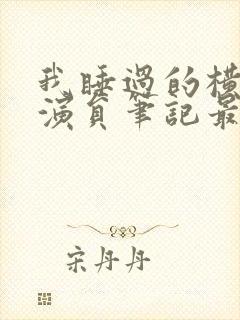 我睡過的橫
演員筆記最
宋丹丹